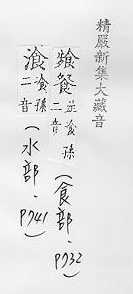 精嚴新集大藏音
飱餐 並飡孫二音（食部．P732）
湌 飡孫二音（水部．P741）